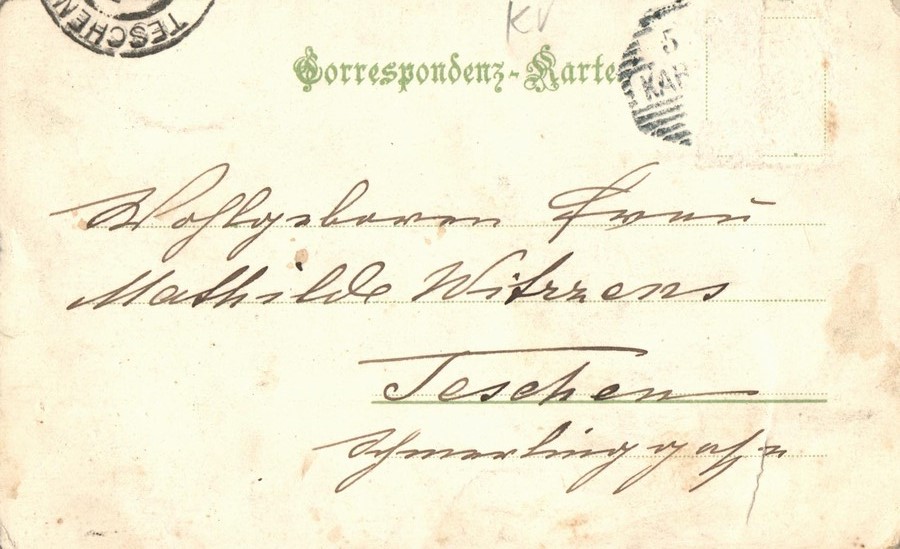 TESCHEN
KV
Correspondenz-Karte
5
KAR
Wohlgeboren Frau
Mathilde Witrzens
Teschen
Schmerlinggasse